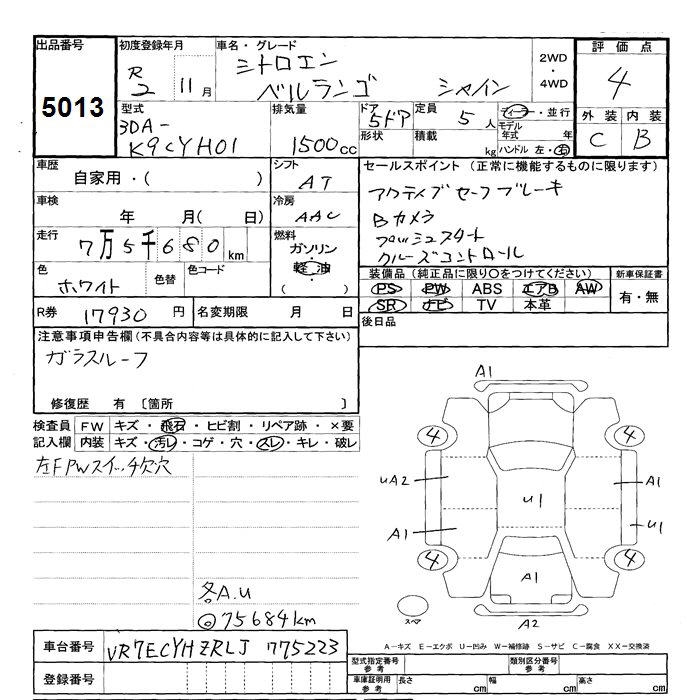 出品番号
5013
初度登録年月
R2 11月
車名・グレード
シトロエン
ベルランゴ シャイン
2WD
・
4WD
評価点
4
外装 内装
C B
型式
3DA-
K9CYH01
排気量
1500cc
ドア
5ドア
形状
定員 5人
積載 kg
ディーラー・並行
モデル年式 年
ハンドル 左・右
車歴
自家用・( )
シフト
AT
セールスポイント (正常に機能するものに限ります)
アクティブセーフブレーキ
Bカメラ
プッシュスタート
クルーズコントロール
車検
年 月( 日)
冷房
AAC
走行
7万5千680km
燃料
ガソリン
・
軽油
・
( )
色
ホワイト
色替
色コード
装備品(純正品に限り○をつけてください)
PS PW ABS エアB AW
SR ナビ TV 本革
新車保証書
有・無
R券 17930円
名変期限 月 日
後日品
注意事項申告欄(不具合内容等は具体的に記入して下さい)
ガラスルーフ
修復歴 有 〔箇所 〕
検査員記入欄
FW キズ・飛石・ヒビ割・リペア跡・×要
内装 キズ・汚レ・コゲ・穴・スレ・キレ・破レ
左FPWスイッチ欠穴
各A.U
◎75684km
A1
4 4
UA2 A1
U1
A1 U1
4 4
A1
スペア
A2
A-キズ E-エクボ U-凹み W-補修跡 S-サビ C-腐食 XX-交換済
車台番号 VR7ECYHZRLJ 775223
登録番号
型式指定番号 参考
類別区分番号 参考
車庫証明用 参考
長さ cm 幅 cm 高さ cm